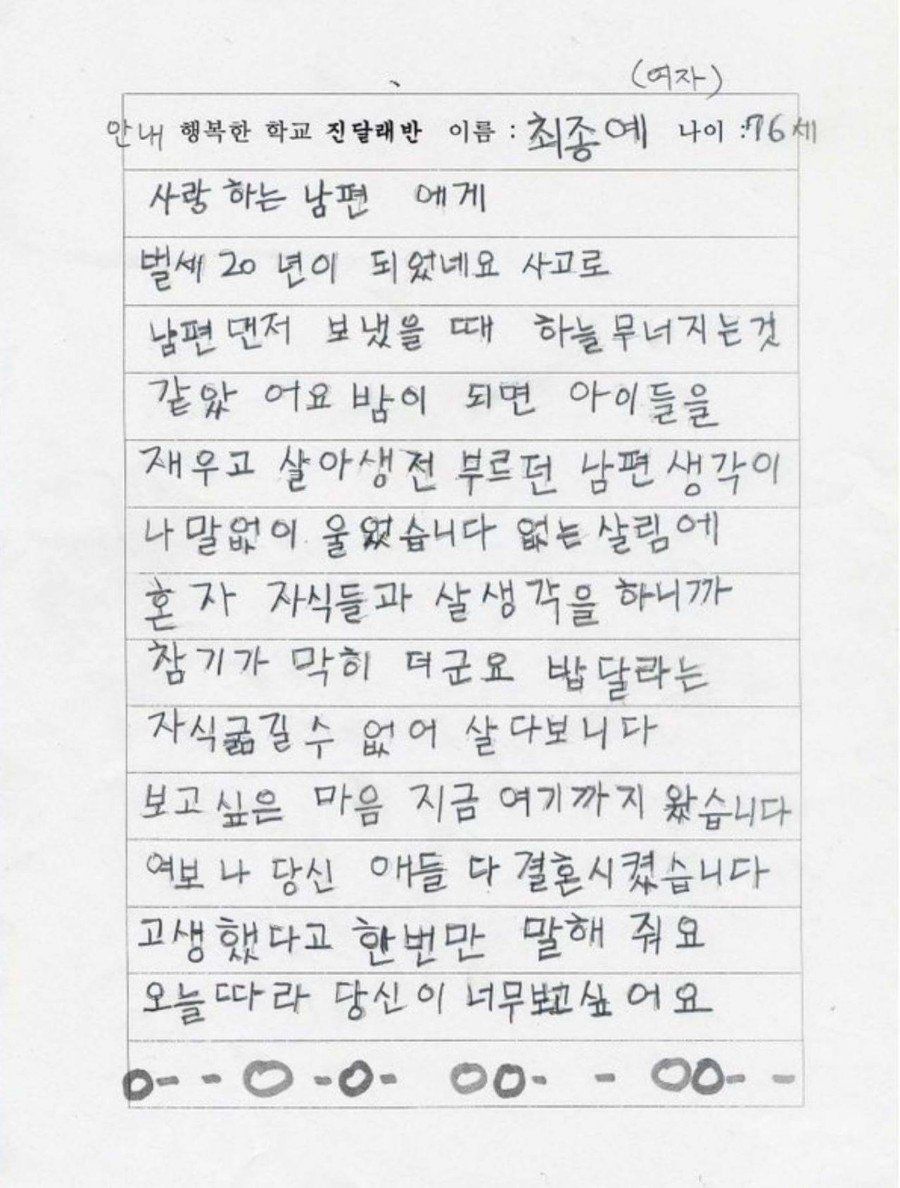 (여자)
안내 행복한 학교 진달래반 이름 : 최종예 나이 : 76세
사랑하는 남편 에게
벌세 20년이 되었네요 사고로
남편 맨저 보냈을 때 하늘무너지는것
같았 어요 밤이 되면 아이들을
재우고 살아생전 부르던 남편 생각이
나 말없이 울었습니다 없는 살림에
혼자 자식들과 살생각을 하니까
참기가 막히 더군요 밥달라는
자식굶길수 없어 살다보니다
보고싶은 마음 지금 여기까지 왔습니다
여보 나 당신 애들 다 결혼시켰습니다
고생했다고 한번만 말해 줘요
오늘따라 당신이 너무보고싶어요